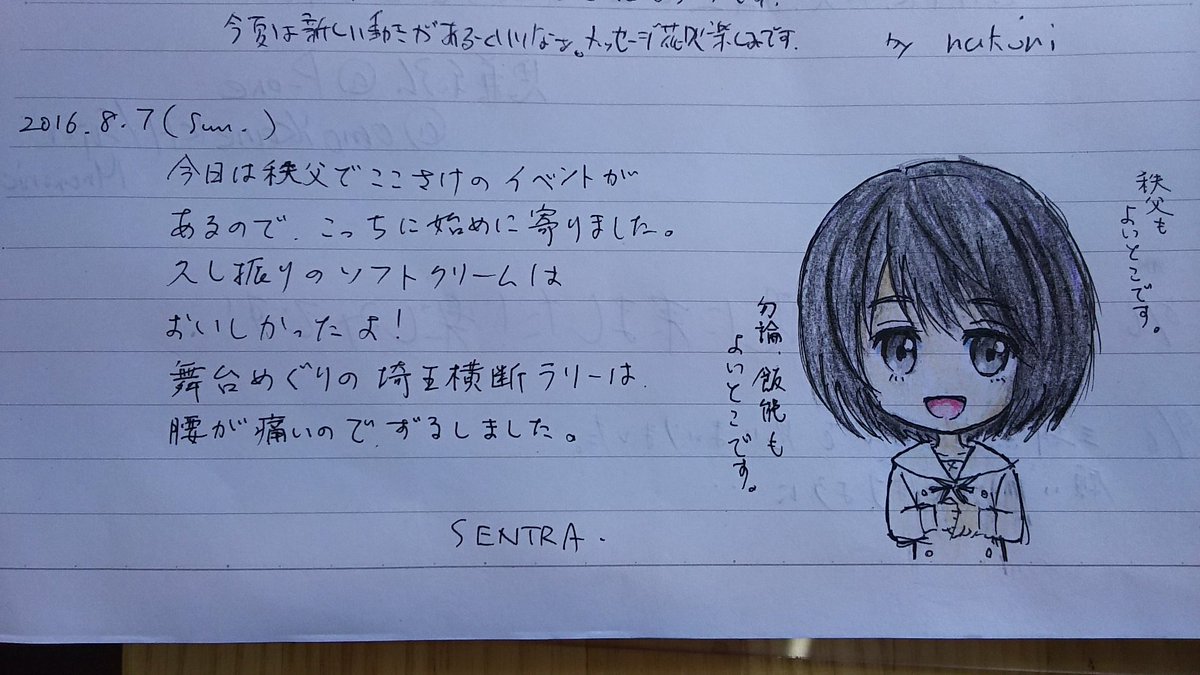 今夏は新しい動きがあるといいなぁ。メッセージ花火楽しみです. by nakuri
2016.8.7(Sun.)
今日は秩父でここさけのイベントが
あるので、こっちに始めに寄りました。
久し振りのソフトクリームは
おいしかったよ!
舞台めぐりの埼玉横断ラリーは、
腰が痛いので、ずるしました。
SENTRA.
秩父も
よいとこです。
勿論、飯能も
よいとこです。